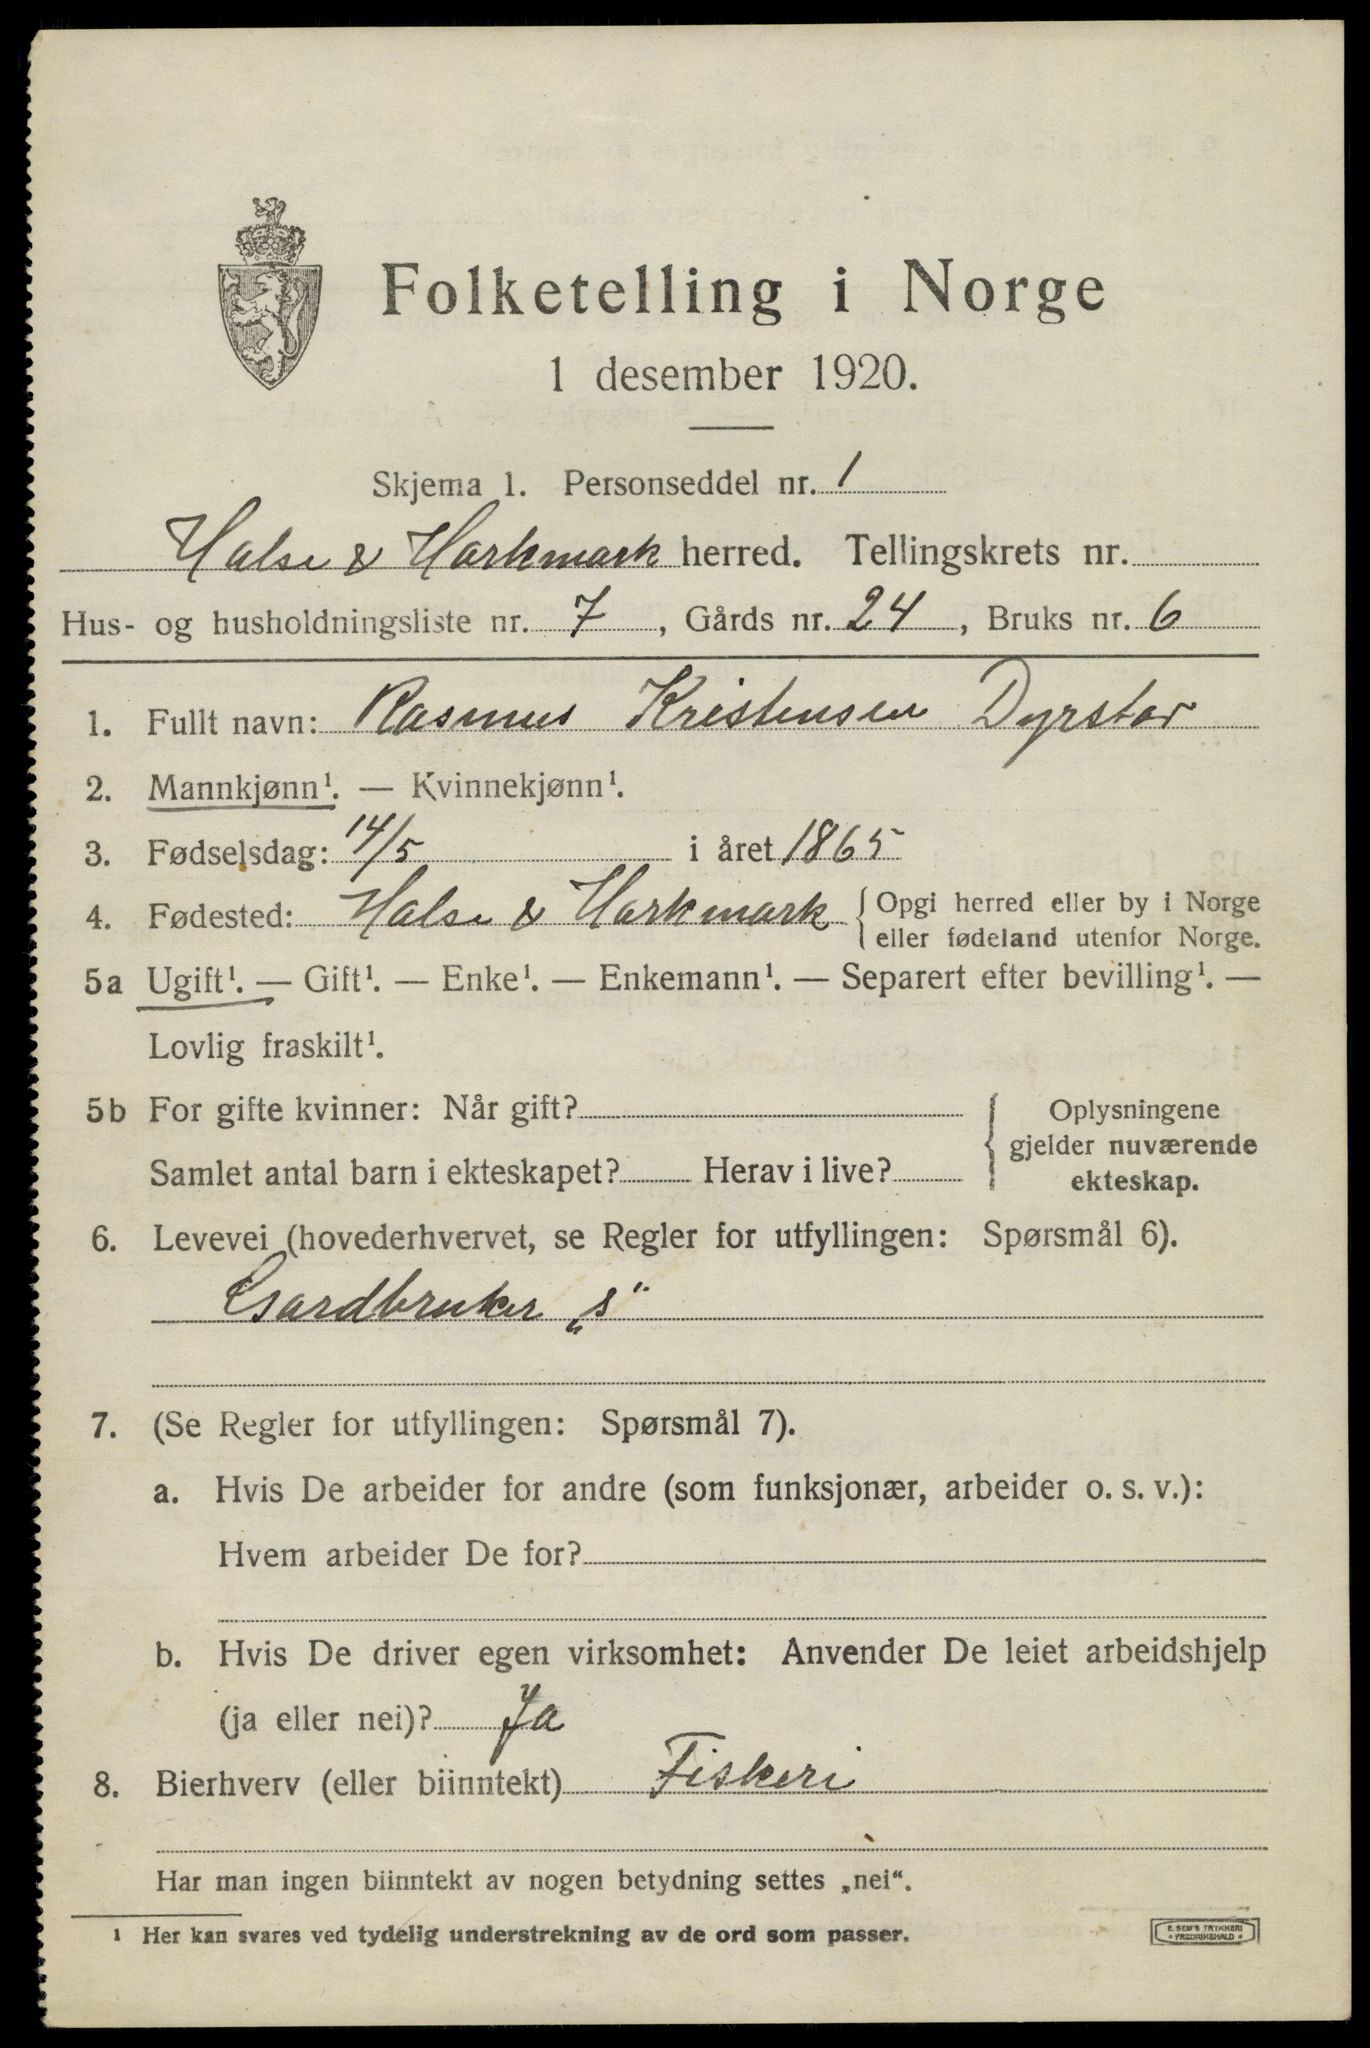 Folketelling i Norge
1 desember 1920.
Skjema 1. Personseddel nr. 1
Halse & Harkmark herred. Tellingskrets nr.
Hus- og husholdningsliste nr. 7, Gårds nr. 24, Bruks nr. 6
1. Fullt navn: Rasmus Kristensen Dyrstar
2. Mannkjønn¹. — Kvinnekjønn¹.
3. Fødselsdag: 14/5 i året 1865
4. Fødested: Halse & Harkmark { Opgi herred eller by i Norge
eller fødeland utenfor Norge.
5a Ugift¹. — Gift¹. — Enke¹. — Enkemann¹. — Separert efter bevilling¹. —
Lovlig fraskilt¹.
5b For gifte kvinner: Når gift?
Samlet antal barn i ekteskapet? Herav i live?
Oplysningene
gjelder nuværende
ekteskap.
6. Levevei (hovederhvervet, se Regler for utfyllingen: Spørsmål 6).
Gardbruker „s"
7. (Se Regler for utfyllingen: Spørsmål 7).
a. Hvis De arbeider for andre (som funksjonær, arbeider o. s. v.):
Hvem arbeider De for?
b. Hvis De driver egen virksomhet: Anvender De leiet arbeidshjelp
(ja eller nei)? Ja
8. Bierhverv (eller biinntekt) Fiskeri
Har man ingen biinntekt av nogen betydning settes „nei“.
¹ Her kan svares ved tydelig understrekning av de ord som passer.
E. SEM'S TRYKKERI
• FREDRIKSHALD •